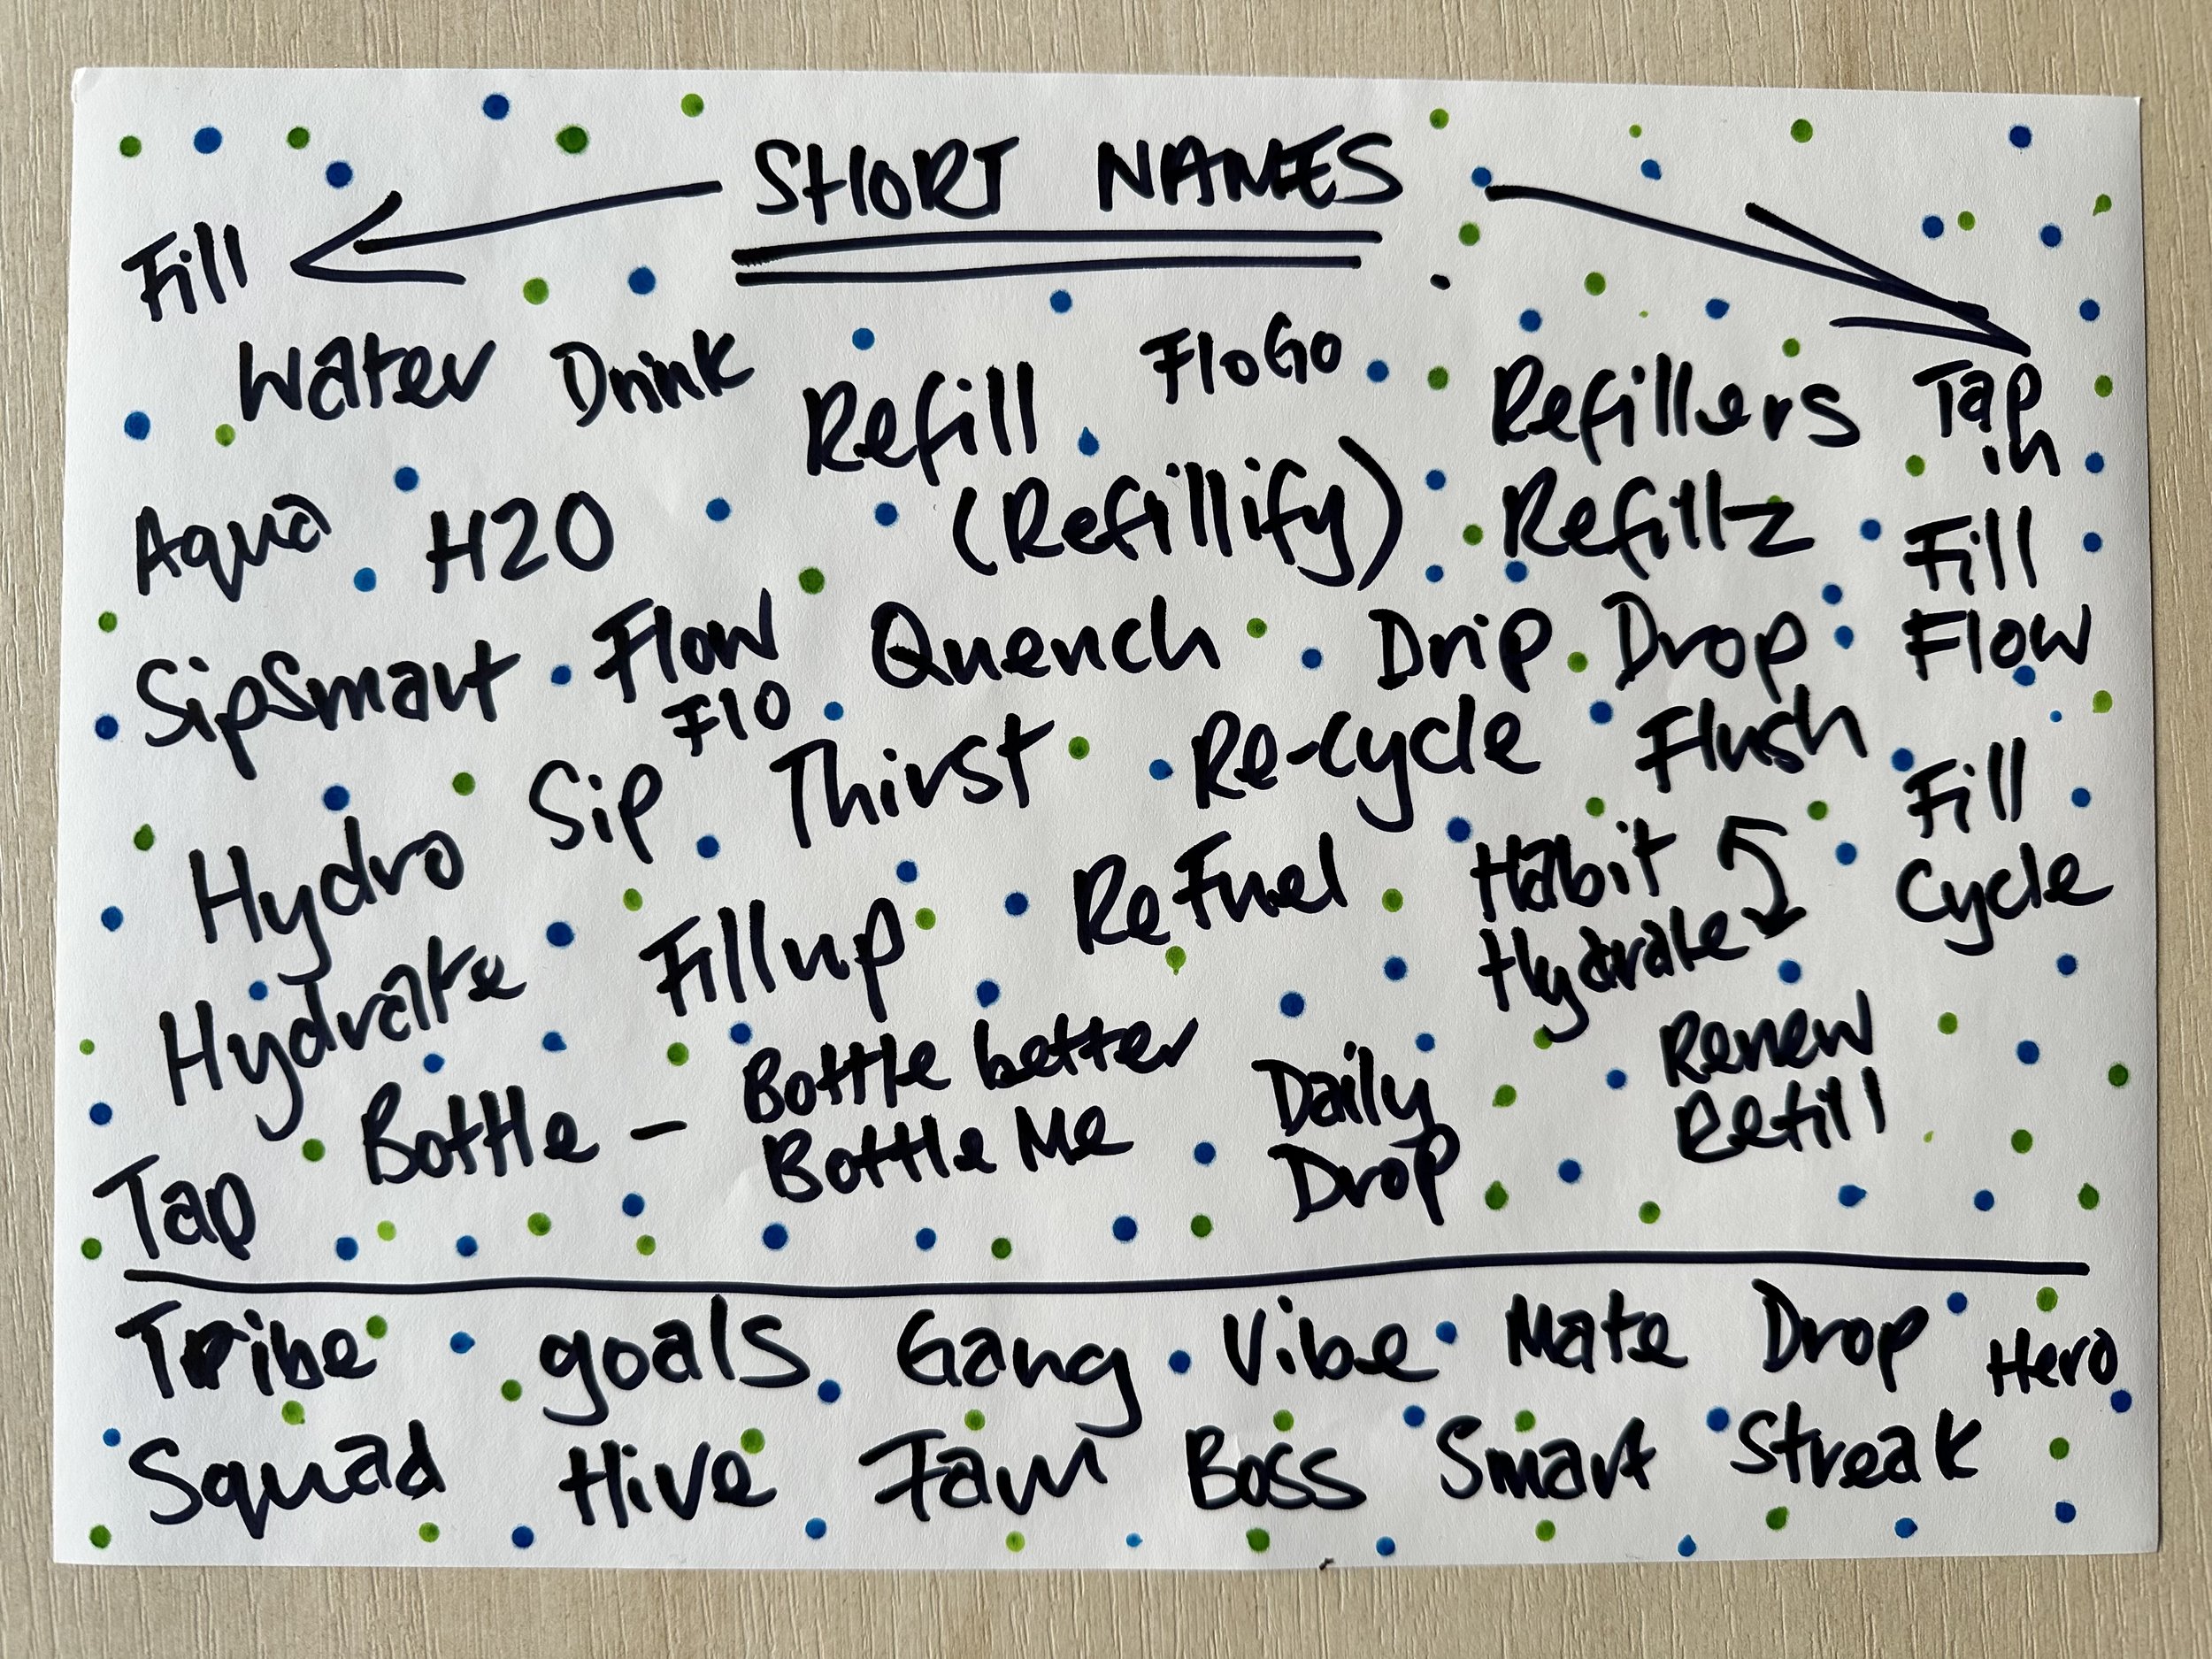 SHORT NAMES
Fill
Water Drink Refill FloGo Refillers Tap in
Aqua H2O (Refillify) Refillz Fill Flow
SipSmart Flow Flo Quench Drip Drop
Hydro Sip Thirst Re-cycle Flush Fill Cycle
Hydrate Fillup ReFuel Habit Hydrate
Bottle - Bottle better Daily Drop Renew Refill
Bottle Me
Tap
Tribe goals Gang Vibe Mate Drop Hero
Squad Hive Fam Boss Smart Streak